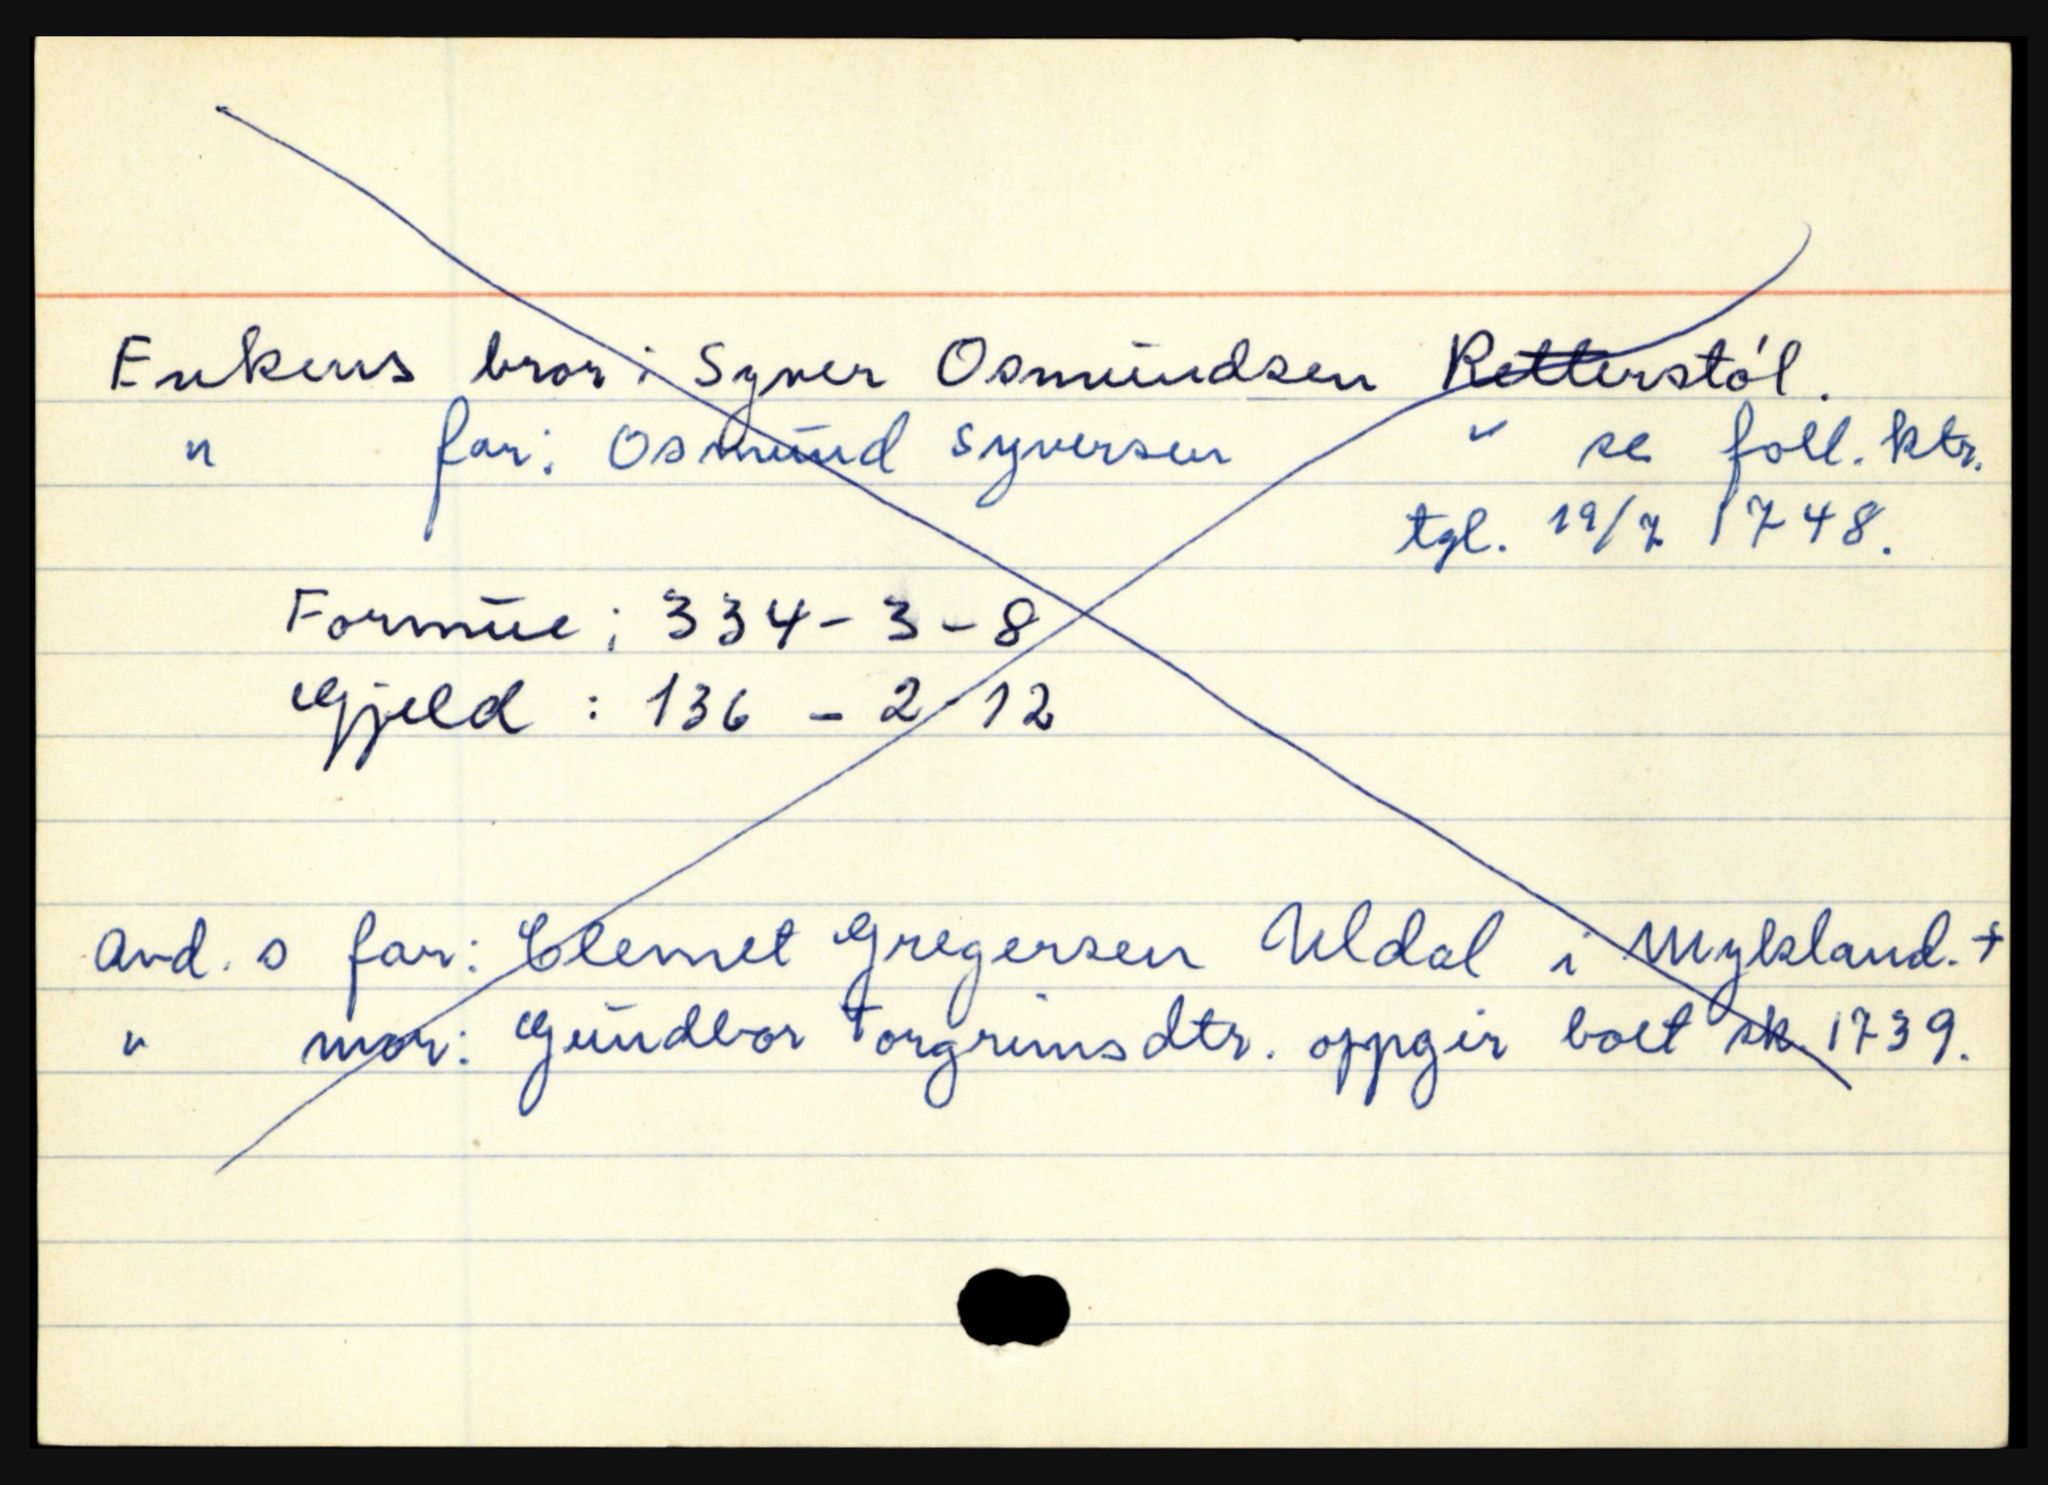 Enkens bror: Syver Osmundsen Retterstøl.
" far: Osmund Syversen " se foll. ktr.
tgl. 19/7 1748.
Formue: 334 - 3 - 8
Gjeld : 136 - 2 - 12
avd. s far: Clemet Gregersen Uldal i Mykland. +
" mor: Gundbor Torgrimsdtr. oppgir boet sk. 1739.